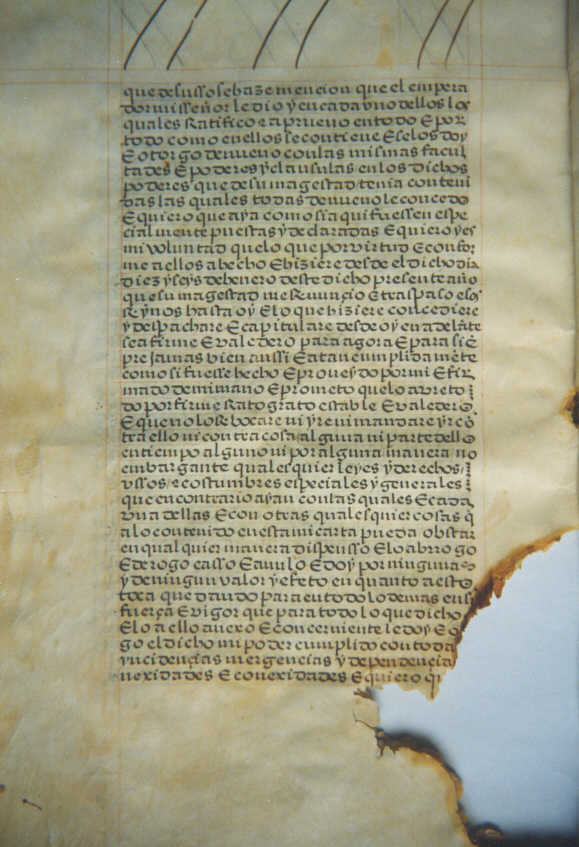 que de suso se haze mencion que el empera
dor mi señor le dio y en cada vno dellos los
quales Ratifico e apruevo en todo E por
todo como en ellos se contiene E se los doy
E otorgo de nuevo con las mismas facul
tades E poderes y clausulas en los dichos
poderes que de su magestad tenia conteni
das las quales todas de nuevo le concedo
E quiero que aya como si aqui fuessen espe
cialmente puestas y declaradas E quiero y es
mi voluntad que lo que por virtud E confor
me a ellos a hecho E hiziere desde el dicho dia
diez y seys de henero deste dicho presente año
que su magestad me Renunçio e traspaso esos
Reynos hasta oy E lo que hiziere concediere
y despachare E capitulare desde oy en adelãte
sea firme E valedero para agora E para siẽ
pre jamas bien aussi E atan cumplidamẽte
como si fuesse hecho E proveydo por mi E fir
mado de mi mano E prometo que lo avre to
do por firme Rato grato estable E valedero
E que no lo Rebocare ni yre ni mandare yr cõ
tra ello ni contra cosa alguna ni parte dello
en tiempo alguno ni por alguna manera no
embargante quales quier leyes y derechos
vssos e costumbres especiales y generales
que en contrario ayan con las quales E cada
vna dellas E con otras quales quier cosas q̃
a lo contenido en esta mi carta pueda obstar
en qual quier manera dispensso E lo abrogo
E derogo casso E anulo E doy por ninguna
y de ningun valor y efeto en quanto a esto
toca que dando para en todo lo demas en su
fuerça E vigor que para todo lo que dicho
E lo a ello anexo E concerniente le doy E o
go el dicho mi poder cumplido con toda
yncidençias mergencias y dependencia
nexidades E conexidades E quiero q